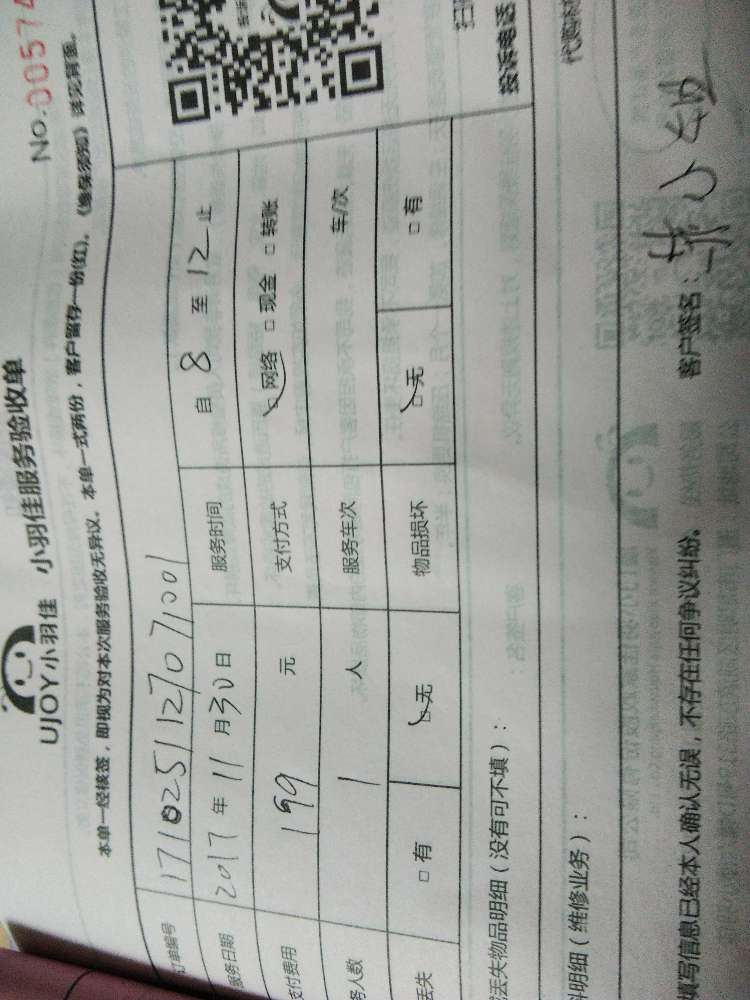 UJOY小羽佳 小羽佳服务验收单
No.00574
本单一经核签，即视为对本次服务验收无异议。本单一式两份，客户留存一份(红)。《维保须知》详见背面。
订单编号 1710251127071001
服务日期 2017年11月30日 服务时间 自8至12止
支付费用 199元 支付方式 网络 □现金 □转账
服务人数 1人 服务车次 车/次
丢失 □有 □无 物品损坏 □无 □有
丢失物品明细（没有可不填）：
明细（维修业务）：
填写信息已经本人确认无误，不存在任何争议纠纷。 客户签名：
扫
投诉电话
代购